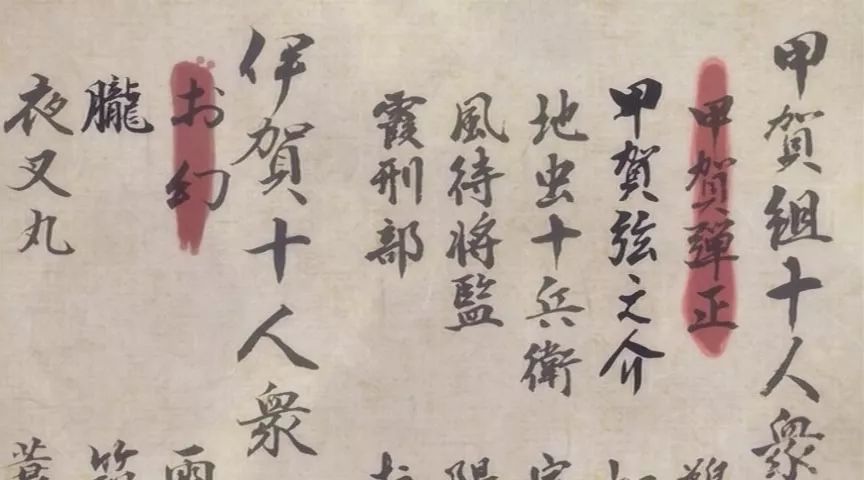 甲賀組十人衆
甲賀弾正
甲賀弦之介
地虫十兵衛
風待将監
霞刑部
伊賀十人衆
お幻
朧
夜叉丸